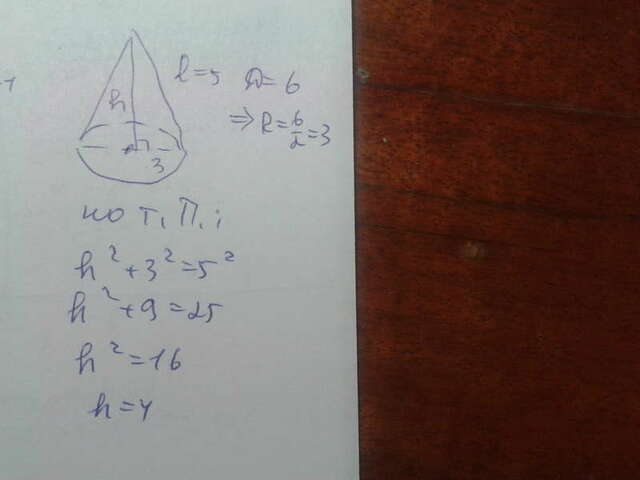 h
l=5
D=6
⇒R=6/2=3
3
по т. П.:
h²+3²=5²
h²+9=25
h²=16
h=4